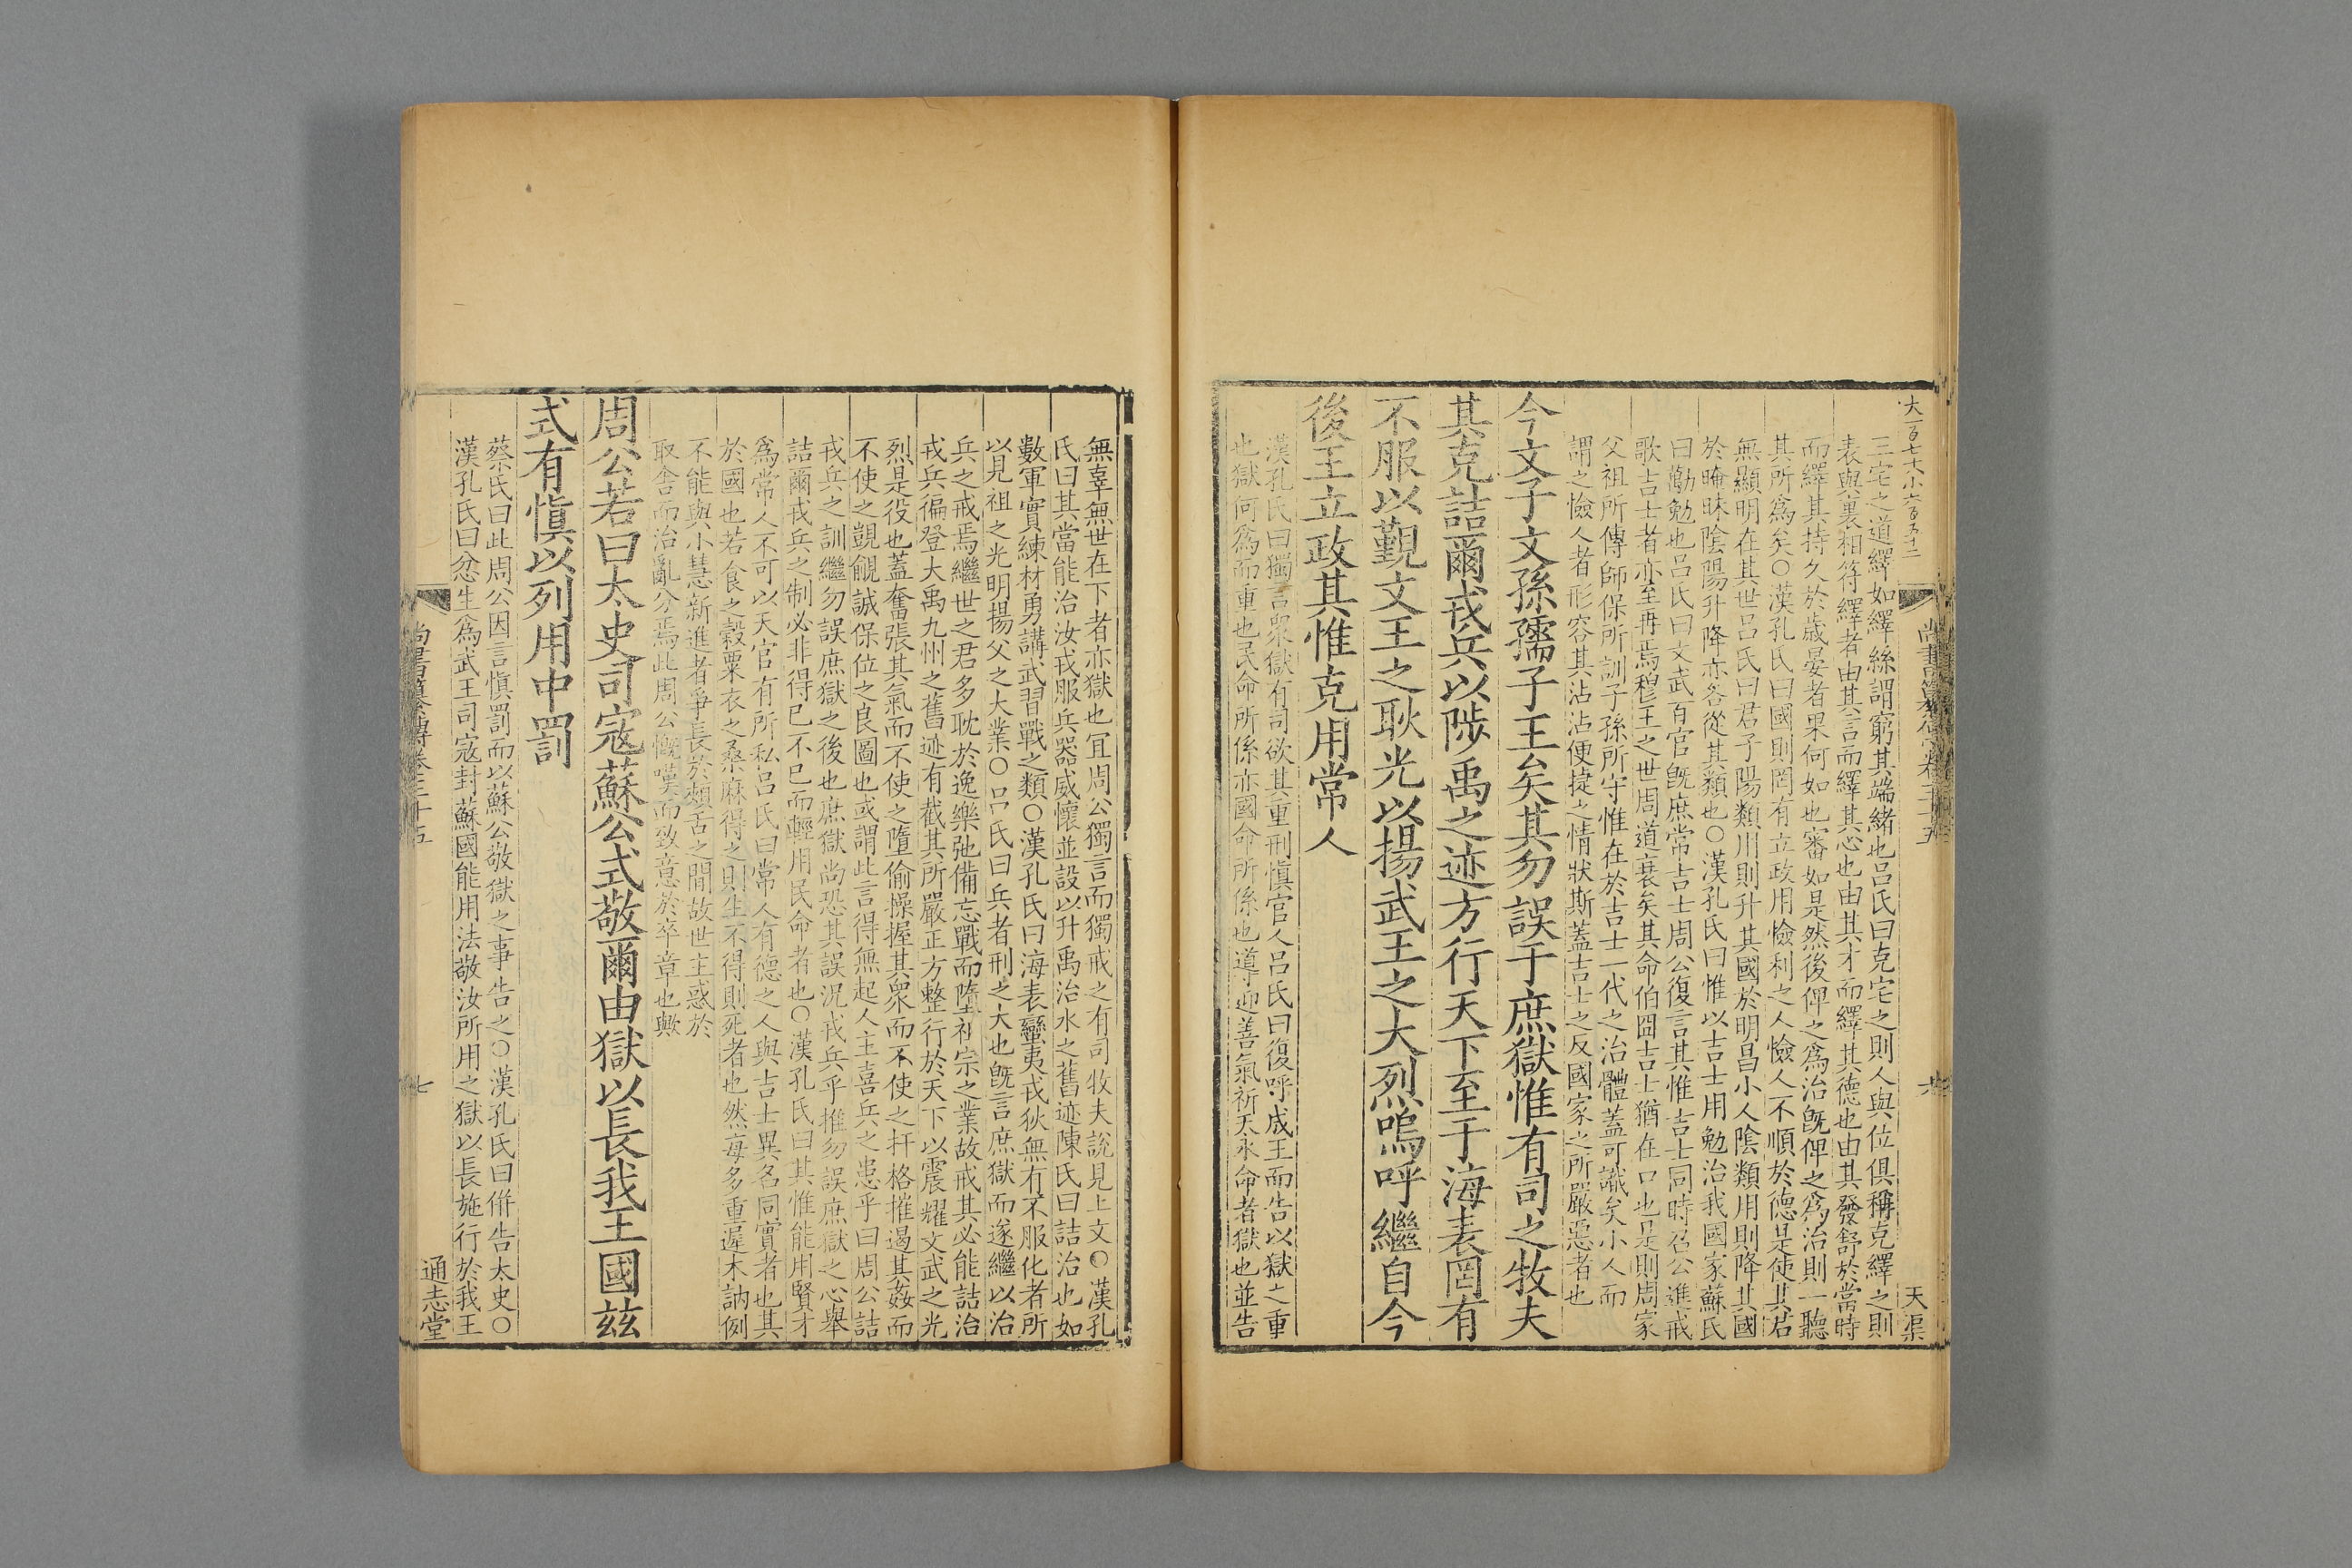 大一百七十八小六百五十二
尚書纂傳卷三十五
六
天渠
三宅之道繹如繹絲謂窮其端緒也呂氏曰克宅之則人與位俱稱克繹之則
表與裏相符繹者由其言而繹其心也由其才而繹其德也由其發舒於當時
而繹其持久於歲晏者果何如也審如是然後俾之爲治旣俾之爲治則一聽
其所爲矣○漢孔氏曰國則罔有立政用憸利之人憸人不順於德是使其君
無顯明在其世呂氏曰君子陽類川則升其國於明昌小人陰類用則降其國
於晻昧陰陽升降亦各從其類也○漢孔氏曰惟以吉士用勉治我國家蘇氏
曰勱勉也呂氏曰文武百官旣庶常吉士周公復言其惟吉士同時召公進戒
歌吉士者亦至再焉穆王之世周道衰矣其命伯冏吉士猶在口也是則周家
父祖所傳師保所訓子孫所守惟在於吉士一代之治體蓋可識矣小人而
謂之憸人者形容其沾沾便捷之情狀斯蓋吉士之反國家之所嚴惡者也
今文子文孫孺子王矣其勿誤于庶獄惟有司之牧夫
其克詰爾戎兵以陟禹之迹方行天下至于海表罔有
不服以覲文王之耿光以揚武王之大烈嗚呼繼自今
後王立政其惟克用常人
漢孔氏曰獨言衆獄有司欲其重刑愼官人呂氏曰復呼成王而告以獄之重
也獄何爲而重也民命所係亦國命所係也導迎善氣祈天永命者獄也並告
無辜無世在下者亦獄也宜周公獨言而獨戒之有司牧夫說見上文○漢孔
氏曰其當能治汝戎服兵器威懷並設以升禹治水之舊迹陳氏曰詰治也如
數軍實練材勇講武習戰之類○漢孔氏曰海表蠻夷戎狄無有不服化者所
以見祖之光明揚父之大業○呂氏曰兵者刑之大也旣言庶獄而遂繼以治
兵之戒焉繼世之君多耽於逸樂弛備忘戰而墮祖宗之業故戒其必能詰治
戎兵徧登大禹九州之舊迹有截其所嚴正方整行於天下以震耀文武之光
烈是役也蓋奮張其氣而不使之墮偷操握其衆而不使之扞格摧遏其姦而
不使之覬覦誠保位之良圖也或謂此言得無起人主喜兵之患乎曰周公詰
戎兵之訓繼勿誤庶獄之後也庶獄尚恐其誤況戎兵乎推勿誤庶獄之心舉
詰爾戎兵之制必非得已不已而輕用民命者也○漢孔氏曰其惟能用賢才
爲常人不可以天官有所私呂氏曰常人有德之人與吉士異名同實者也其
於國也若食之穀粟衣之桑麻得之則生不得則死者也然每多重遲木訥例
不能與小慧新進者爭長於頰舌之間故世主惑於
取舍而治亂分焉此周公慨嘆而致意於卒章也歟
周公若曰太史司寇蘇公式敬爾由獄以長我王國兹
式有愼以列用中罰
蔡氏曰此周公因言愼罰而以蘇公敬獄之事告之○漢孔氏曰併告太史○
漢孔氏曰忿生爲武王司寇封蘇國能用法敬汝所用之獄以長施行於我王
尚書纂傳卷三十五
七
通志堂